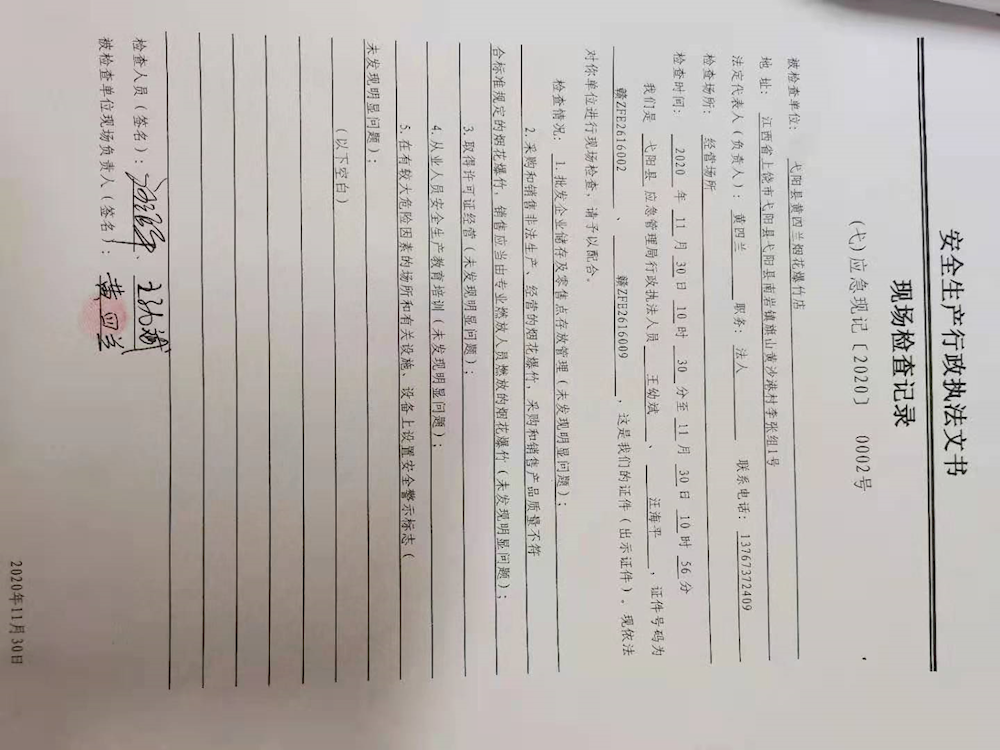 安全生产行政执法文书
现场检查记录
（弋）应急现记〔2020〕 0002号
被检查单位： 弋阳县黄四兰烟花爆竹店
地 址： 江西省上饶市弋阳县弋阳县南岩镇旗山黄沙港村李张组1号
法定代表人（负责人）： 黄四兰 职务： 法人 联系电话： 13767372409
检查场所： 经营场所
检查时间： 2020 年 11 月 30 日 10 时 30 分至 11 月 30 日 10 时 56 分
我们是 弋阳县 应急管理局行政执法人员 王幼斌 、 汪海平 ，证件号码为
赣ZFE2616002 、 赣ZFE2616009 ，这是我们的证件（出示证件）。现依法
对你单位进行现场检查，请予以配合。
检查情况： 1.批发企业储存及零售点存放管理（未发现明显问题）；
2.采购和销售非法生产、经营的烟花爆竹，采购和销售产品质量不符
合标准规定的烟花爆竹，销售应当由专业燃放人员燃放的烟花爆竹（未发现明显问题）；
3.取得许可证经营（未发现明显问题）；
4.从业人员安全生产教育培训（未发现明显问题）；
5.在有较大危险因素的场所和有关设施、设备上设置安全警示标志（
未发现明显问题）；
（以下空白）
检查人员（签名）： 汪海平、王幼斌
被检查单位现场负责人（签名）： 黄四兰
2020年11月30日